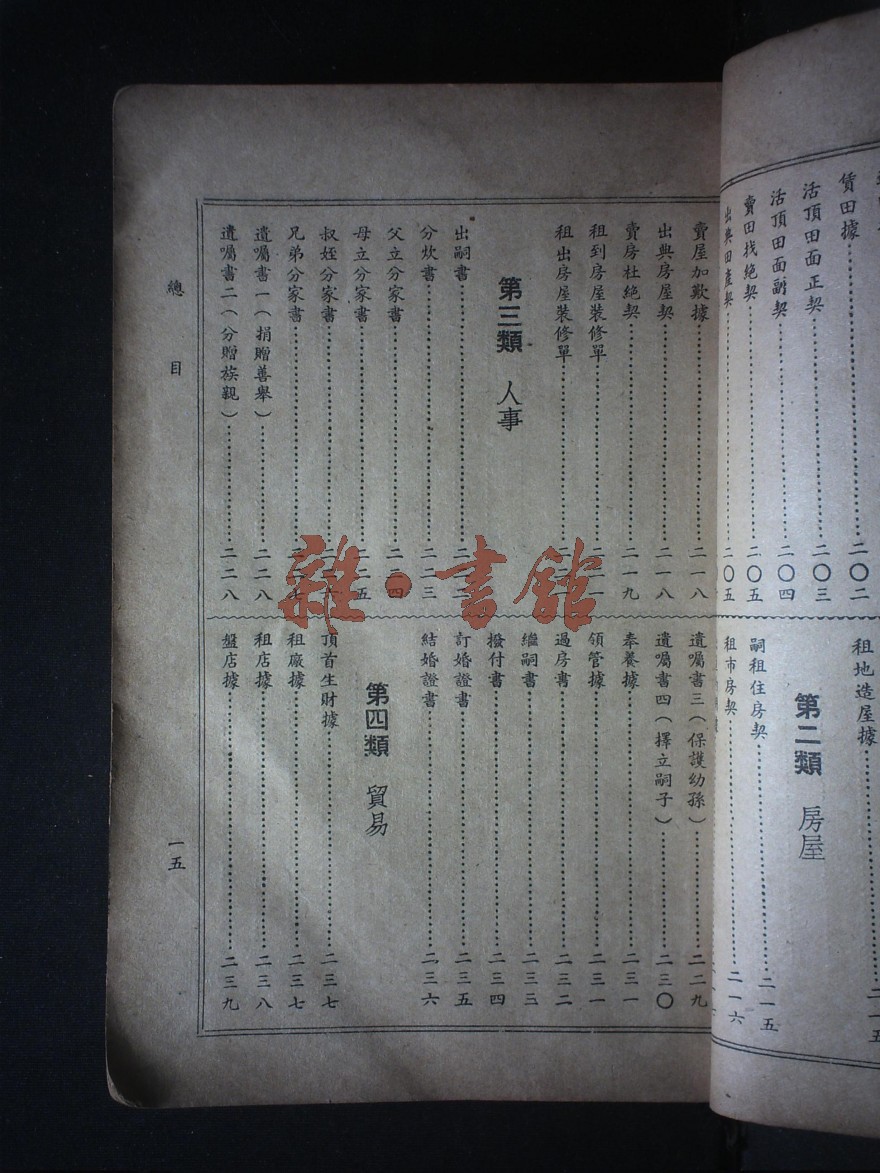 賃田據……二〇二
活頂田面正契……二〇三
活頂田面副契……二〇四
賣田找絕契……二〇五
出典田產契……二〇五
租地造屋據……二一五
第二類 房屋
嗣租住房契……二一五
租市房契……二一六
賣屋加歎據……二一八
出典房屋契……二一八
賣房杜絕契……二一九
租到房屋裝修單
租出房屋裝修單
第三類 人事
出嗣書
分炊書……二二三
父立分家書
母立分家書
叔姪分家書
兄弟分家書
遺囑書一(捐贈善舉)……二二八
遺囑書二(分贈族親)……二二八
遺囑書三(保護幼孫)……二二九
遺囑書四(擇立嗣子)……二三〇
奉養據……二三一
領管據……二三一
過房書……二三二
繼嗣書……二三三
撥付書……二三四
訂婚證書……二三五
結婚證書……二三六
第四類 貿易
頂首生財據……二三七
租廠據……二三七
租店據……二三八
盤店據……二三九
總目
一五
雜·書館